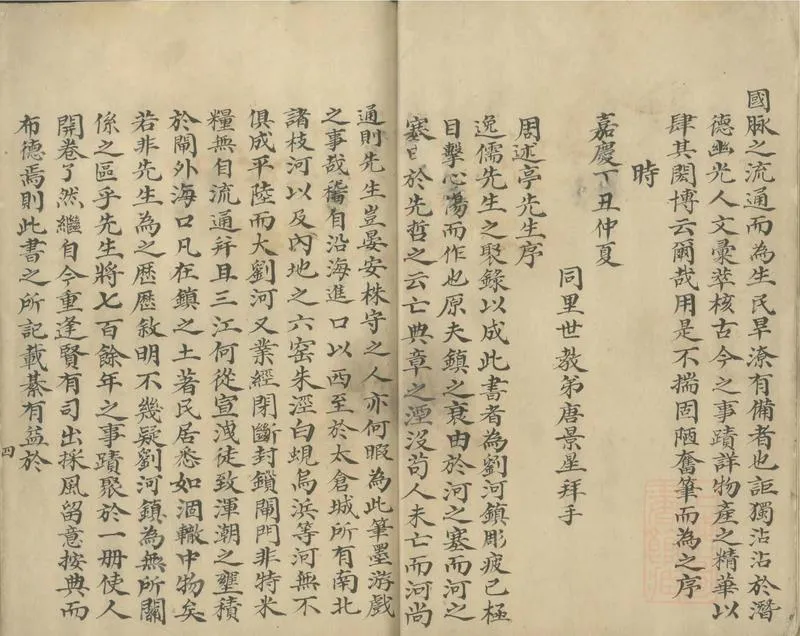 國脉之流通而為生民旱潦有備者也詎獨沾沾於潛
德幽光人文彙萃核古今之事蹟詳物產之精華以
肆其閎博云爾哉用是不揣固陋奮筆而為之序
時
嘉慶丁丑仲夏
同里世教弟唐景星拜手
周述亭先生序
逸儒先生之聚錄以成此書者為劉河鎮彫疲已極
目擊心傷而作也原夫鎮之衰由於河之塞而河之
塞由於先哲之云亡典章之湮沒苟人未亡而河尚
通則先生豈晏安株守之人亦何暇為此筆墨游戲
之事哉稽自沿海進口以西至於太倉城所有南北
諸枝河以及內地之六窑朱涇白蜆烏浜等河無不
俱成平陸而大劉河又業經閉斷封鎖閘門非特米
糧無自流通并且三江何從宣洩徒致渾潮之壅積
於閘外海口凡在鎮之土著民居悉如涸轍中物矣
若非先生為之歷歷敘明不幾疑劉河鎮為無所關
係之區乎先生將七百餘年之事蹟聚於一冊使人
開卷了然繼自今重逢賢有司出採風留意按典而
布德焉則此書之所記載綦有益於
四